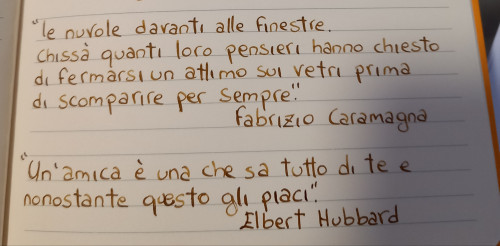 "le nuvole davanti alle finestre.
Chissà quanti loro pensieri hanno chiesto
di fermarsi un attimo sui vetri prima
di scomparire per sempre."
Fabrizio Caramagna
"Un'amica è una che sa tutto di te e
nonostante questo gli piaci".
Elbert Hubbard